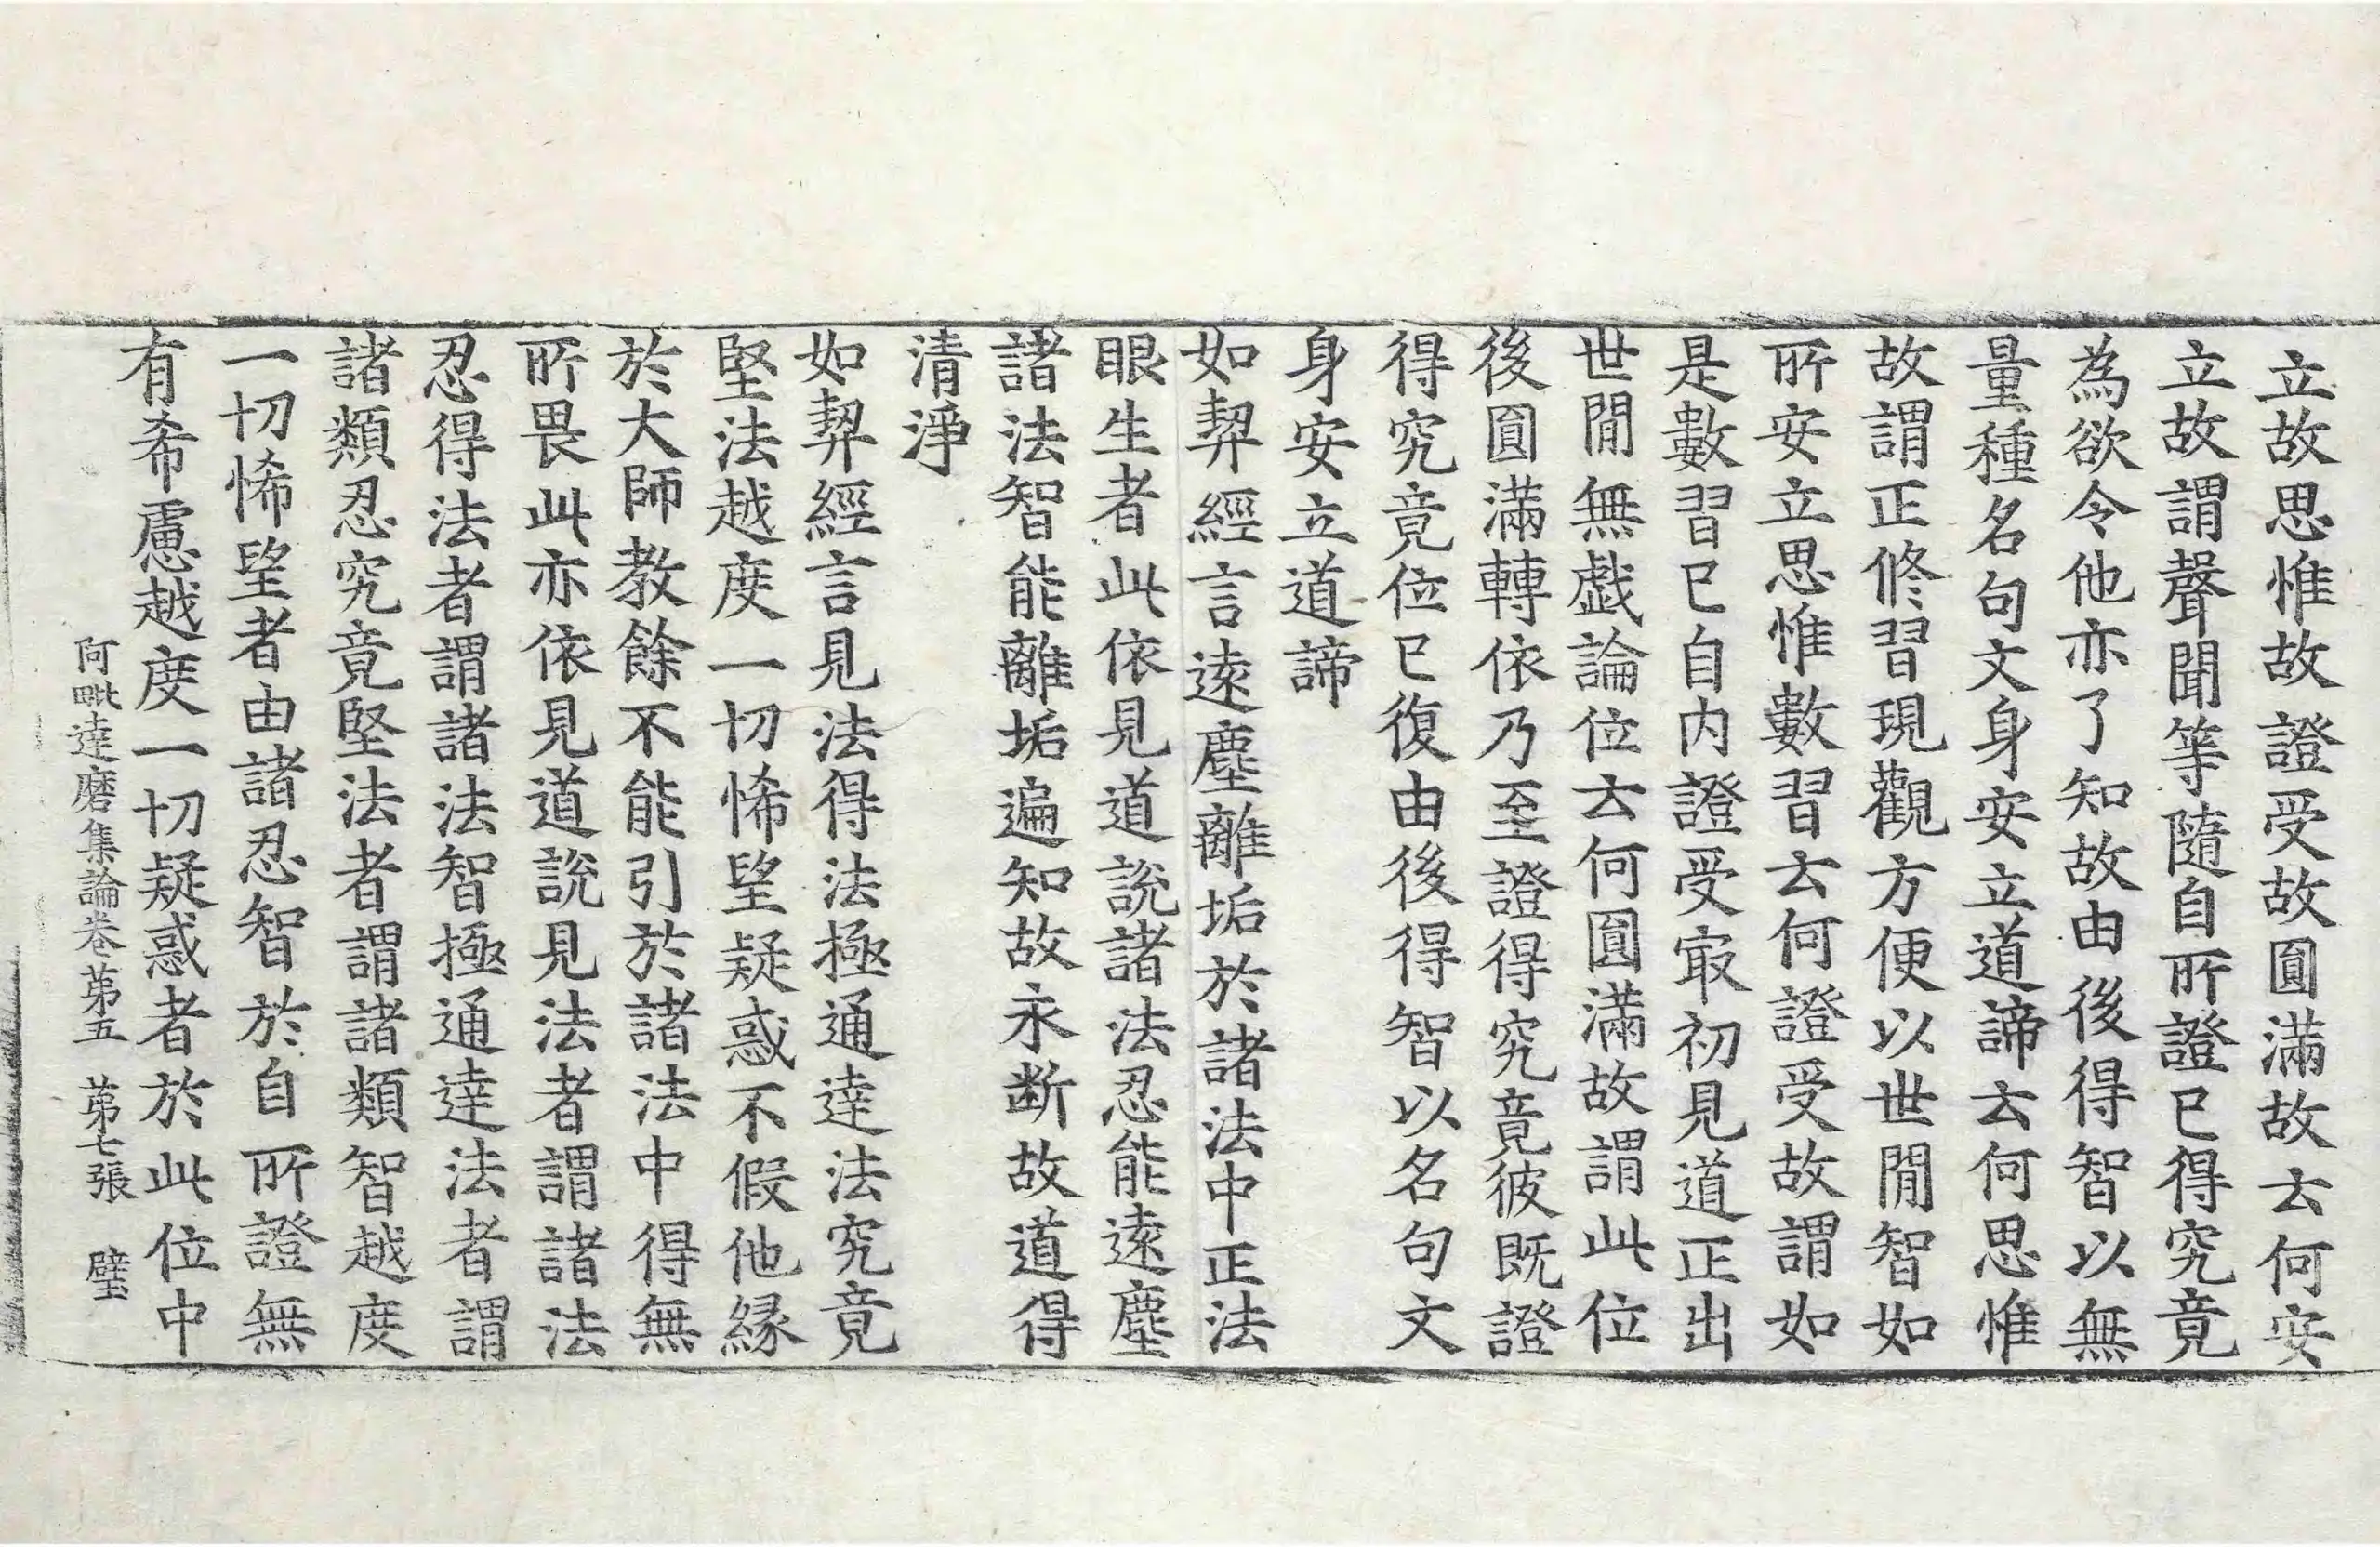 立故思惟故證受故圓滿故云何安
立故謂聲聞等隨自所證已得究竟
為欲令他亦了知故由後得智以無
量種名句文身安立道諦云何思惟
故謂正修習現觀方便以世間智如
所安立思惟數習云何證受故謂如
是數習已自內證受冣初見道正出
世間無戲論位云何圓滿故謂此位
後圓滿轉依乃至證得究竟彼既證
得究竟位已復由後得智以名句文
身安立道諦
如契經言遠塵離垢於諸法中正法
眼生者此依見道說諸法忍能遠塵
諸法智能離垢遍知故永斷故道得
清淨
如契經言見法得法極通達法究竟
堅法越度一切悕望疑惑不假他緣
於大師教餘不能引於諸法中得無
所畏此亦依見道說見法者謂諸法
忍得法者謂諸法智極通達法者謂
諸類忍究竟堅法者謂諸類智越度
一切悕望者由諸忍智於自所證無
有希慮越度一切疑惑者於此位中
阿毗達磨集論卷苐五　苐七張　璧